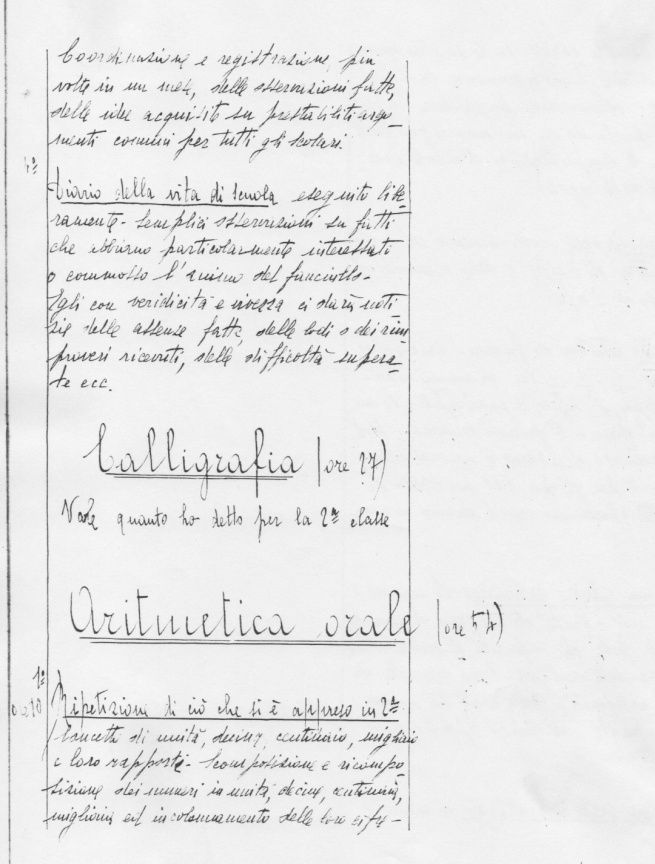 Coordinazione e registrazione, più
volte in un mese, delle osservazioni fatte,
delle idee acquisite su prestabiliti argo-
menti comuni per tutti gli scolari.
4º
Diario della vita di scuola eseguito libe-
ramente - Semplici osservazioni su fatti
che abbiano particolarmente interessato
o commosso l'animo del fanciullo -
Egli con veridicità e vivezza ci darà noti
zie delle assenze fatte, delle lodi o dei rim
proveri ricevuti, delle difficoltà supera-
te ecc.
Calligrafia (ore 27)
Vale quanto ho detto per la 2ª classe
Aritmetica orale (ore 54)
1º
ore 10 Ripetizione di ciò che si è appreso in 2ª
Concetti di unità, decina, centinaio, migliaio
e loro rapporti - Scomposizione e ricompo-
sizione dei numeri in unità, decine, centinaia,
migliaia ed incolonnamento delle loro cifre -